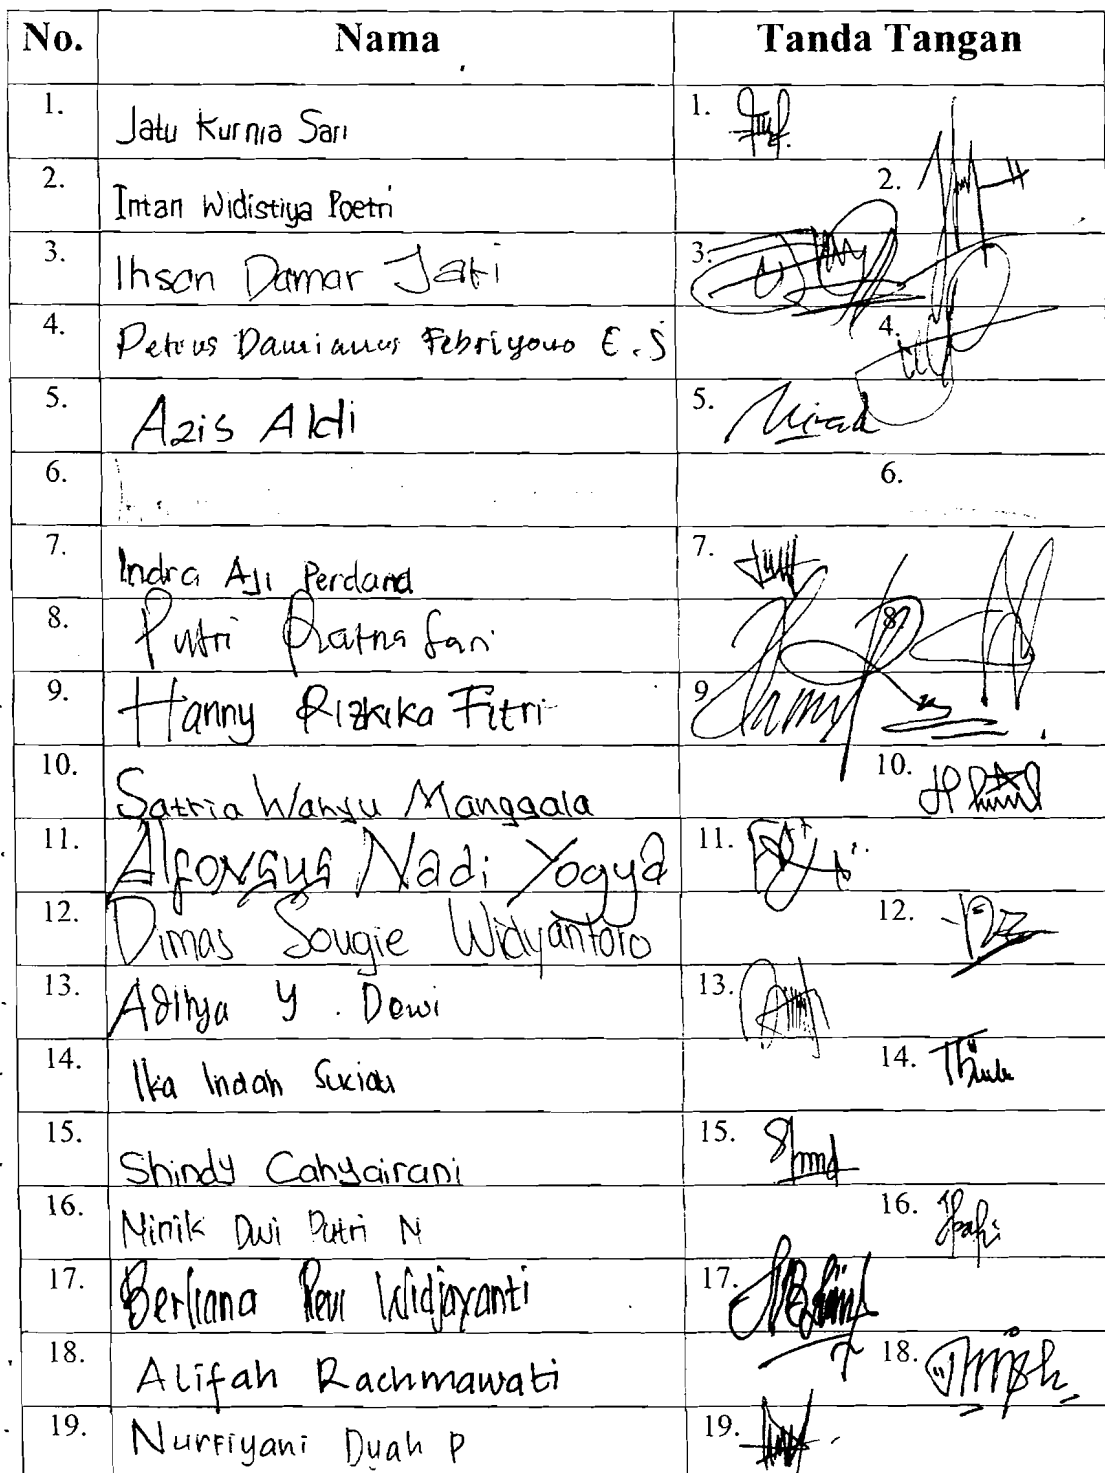 No. Nama Tanda Tangan
1. Jatu Kurnia Sari 1.
2. Intan Widistiya Poetri 2.
3. Ihsan Damar Jati 3.
4. Petrus Damianus Febriyono E.S 4.
5. Azis Aldi 5.
6. 6.
7. Indra Aji Perdana 7.
8. Putri Ratna Sari 8.
9. Hanny Rizkika Fitri 9
10. Satria Wahyu Manggala 10.
11. Alfonsus Nadi Yogya 11.
12. Dimas Sougie Widyantoro 12.
13. Aditya Y. Dewi 13.
14. Ika Indah 14.
15. Shindy Cahyairani 15.
16. Ninik Dwi Putri N 16.
17. Berliana Revi Widjayanti 17.
18. Alifah Rachmawati 18.
19. Nurfiyani Dyah P 19.